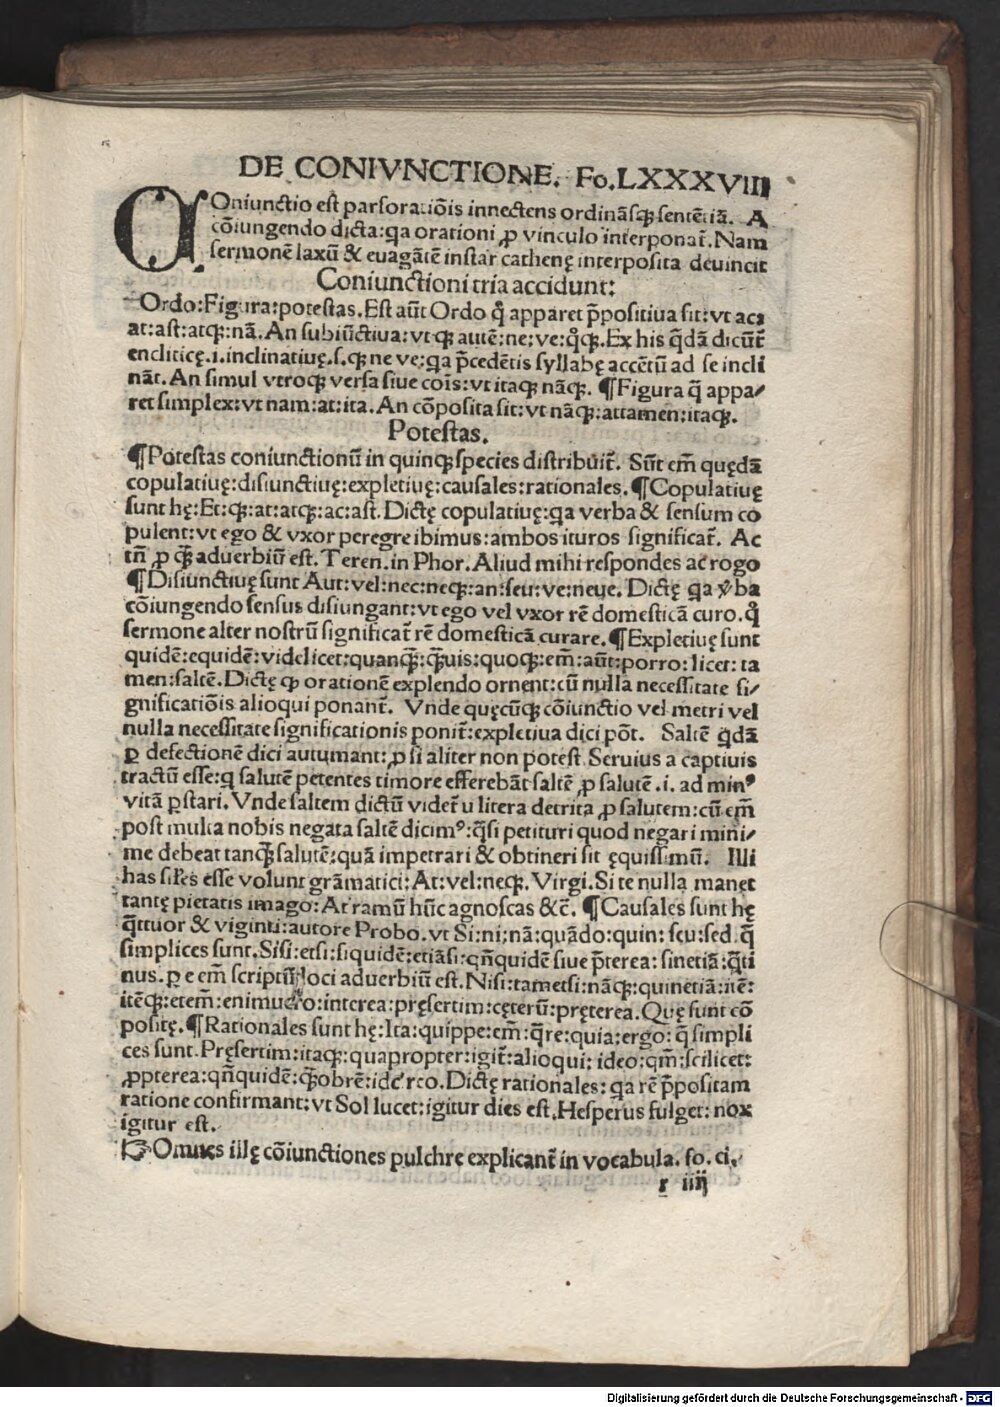 DE CONIVNCTIONE. Fo.LXXXXVIII
COniunctio est pars oratiõis innectens ordinãsq; sentẽtiã. A
cõiungendo dicta: qa orationi ꝓ vinculo interponat̃. Nam
sermonẽ laxũ & euagãtẽ instar cathenę interposita deuincit
Coniunctioni tria accidunt:
Ordo: Figura: potestas. Est aũt Ordo q̃ apparet p̃positiua sit: vt ac:
at: ast: atq;: nã. An subiũctiua: vt q; autẽ: ne: ve: q̃q;. Ex his q̃dã dicũt̃
encliticę .i. inclinatiuę .s. q; ne ve: qa p̃cedẽtis syllabę accẽtũ ad se incli
nãt. An simul vtroq; versa siue cõis: vt itaq; nãq;. ¶ Figura q̃ appa/
ret simplex: vt nam: at: ita. An cõposita sit: vt nãq;: attamen: itaq;.
Potestas.
¶ Potestas coniunctionũ in quinq; species distribuit̃. Sũt em̃ quędã
copulatiuę: disiunctiuę: expletiuę: causales: rationales. ¶ Copulatiuę
sunt hę: Et: q;: at: atq;: ac: ast. Dictę copulatiuę: qa verba & sensum co
pulent: vt ego & vxor peregre ibimus: ambos ituros significat̃. Ac
tñ ꝓ q̃ aduerbiũ est. Teren. in Phor. Aliud mihi respondes ac rogo
¶ Disiunctiuę sunt Aut: vel: nec: neq;: an: seu: ve: neue. Dictę qa v̾ba
cõiungendo sensus disiungant: vt ego vel vxor rẽ domesticã curo. q̃
sermone alter nostrũ significat̃ rẽ domesticã curare. ¶ Expletiuę sunt
quidẽ: equidẽ: videlicet: quanq̃: q̃uis: quoq;: em̃: aũt: porro: licet: ta
men: saltẽ. Dictę ꝙ orationẽ explendo ornent: cũ nulla necessitate si/
gnificatiõis alioqui ponant̃. Vnde quęcũq; cõiunctio vel metri vel
nulla necessitate significationis ponit̃: expletiua dici põt. Saltẽ q̃dã
ꝑ defectionẽ dici autumant: ꝓ si aliter non potest Seruius a captiuis
tractũ esse: q salutẽ petentes timore efferebãt saltẽ ꝓ salutẽ .i. ad minꝰ
vitã p̱stari. Vnde saltem dictũ videt̃ u litera detrita ꝓ salutem: cũ em̃
post multa nobis negata saltẽ dicimꝰ: q̃si petituri quod negari mini/
me debeat tanq̃ salutẽ: quã impetrari & obtineri sit ęquissimũ. Illi
has siles esse volunt grãmatici: At: vel: neq;. Virgi. Si te nulla mouet
tantę pietatis imago: At ramũ hũc agnoscas &c̃. ¶ Causales sunt hę
q̃ttuor & viginti: autore Probo. vt Si: ni: nã: quãdo: quin: seu: sed. q̃
simplices sunt. Sisi: etsi: siquidẽ: etiãsi: qñquidẽ siue p̃terea: sinetiã: q̃ti
nus. ꝑ e em̃ scriptũ loci aduerbiũ est. Nisi: tametsi: nãq;: quinetiã: itẽ:
itẽq;: etem̃: enimuero: interea: pręsertim: cęterũ: pręterea. Quę sunt cõ
positę. ¶ Rationales sunt hę: Ita: quippe: em̃: q̃re: quia: ergo: q̃ simpli
ces sunt. Pręsertim: itaq;: quapropter: igit̃: alioqui: ideo: qm̃: scilicet:
ꝓpterea: qñquidẽ: q̃obrẽ: idcirco. Dictę rationales: qa rẽ p̃positam
ratione confirmant: vt Sol lucet: igitur dies est. Hesperus fulget: nox
igitur est.
☞ Omnes illę cõiunctiones pulchre explicant̃ in vocabula. fo. ci.
r iiij
Digitalisierung gefördert durch die Deutsche Forschungsgemeinschaft - DFG